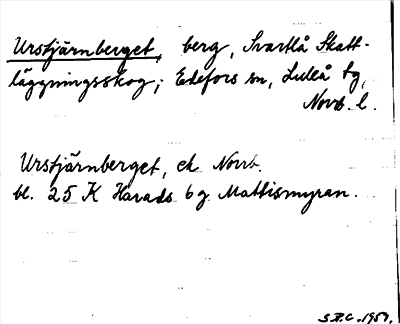 Urstjärnberget, berg, Svartlå Skatt-
läggningsskog; Edefors sn, Luleå tg,
Norrb. l.
Urstjärnberget, ek Norrb.
bl. 25 K Harads 6 g Mattismyran.
S.F.C. 1951.